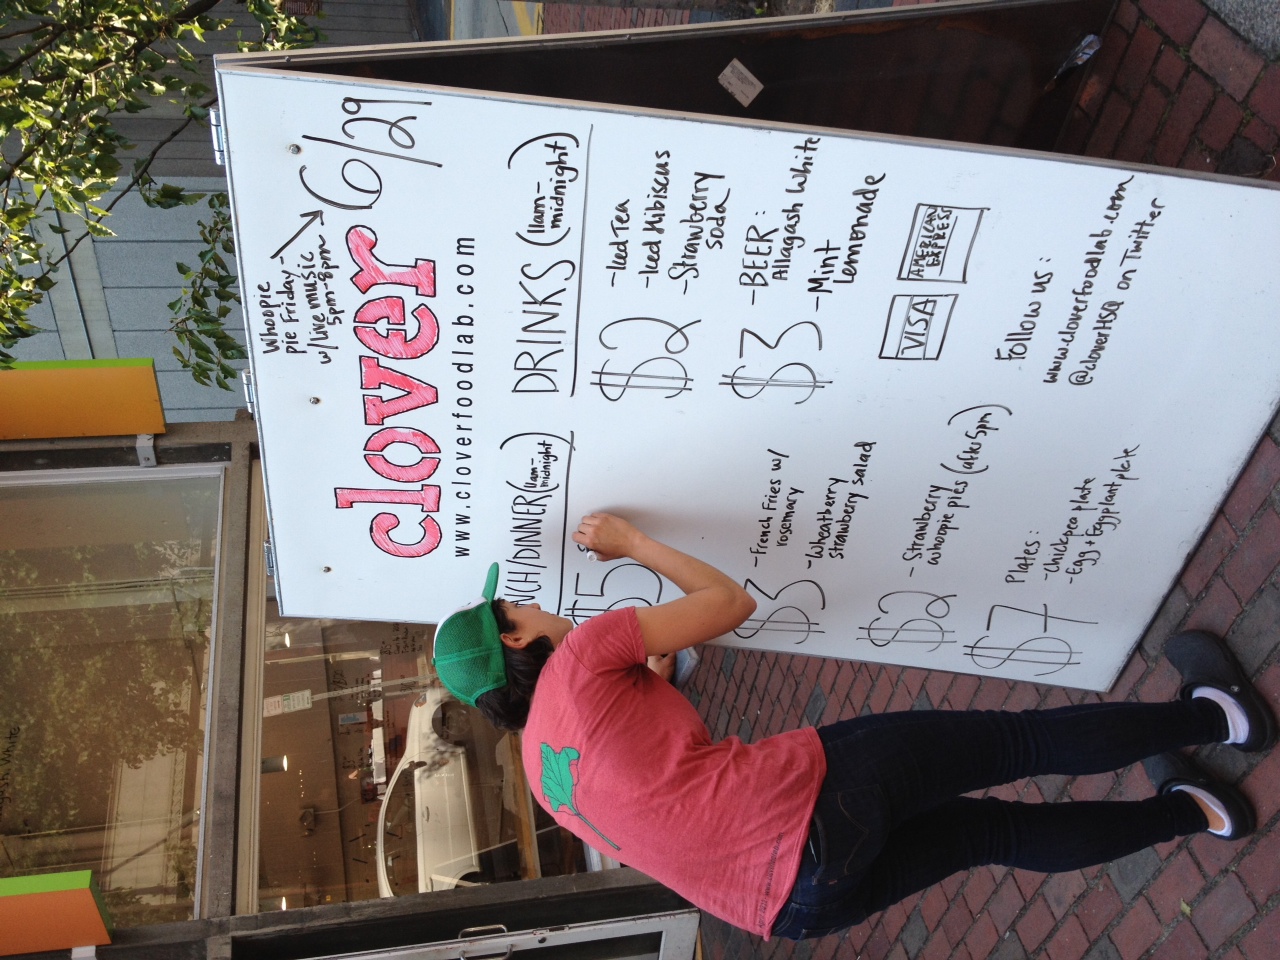 Whoopie
pie Friday
w/live music
5pm-8pm
6/29
clover
www.cloverfoodlab.com
NCH/DINNER (11am-
midnight)
$5
$3
-French Fries w/
rosemary
-Wheatberry
strawberry salad
$2
-Strawberry
whoopie pies (after 5pm)
$7
Plates:
-Chickpea plate
-Egg + Eggplant plate
DRINKS (11am-
midnight)
$2
-Iced Tea
-Iced Hibiscus
-Strawberry
soda
$3
-BEER:
Allagash White
-Mint
Lemonade
VISA
AMERICAN
EXPRESS
Follow us:
www.cloverfoodlab.com
@cloverHSQ on Twitter